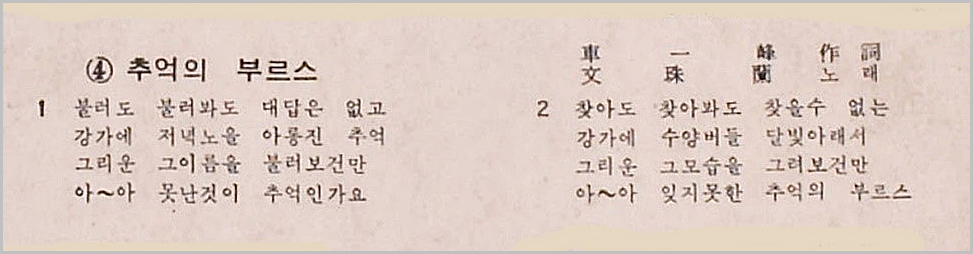 ④ 추억의 부르스
車一峰 作詞
文珠蘭 노래
1 불러도 불러봐도 대답은 없고
강가에 저녁노을 아롱진 추억
그리운 그이름을 불러보건만
아~아 못난것이 추억인가요
2 찾아도 찾아봐도 찾을수 없는
강가에 수양버들 달빛아래서
그리운 그모습을 그려보건만
아~아 잊지못한 추억의 부르스